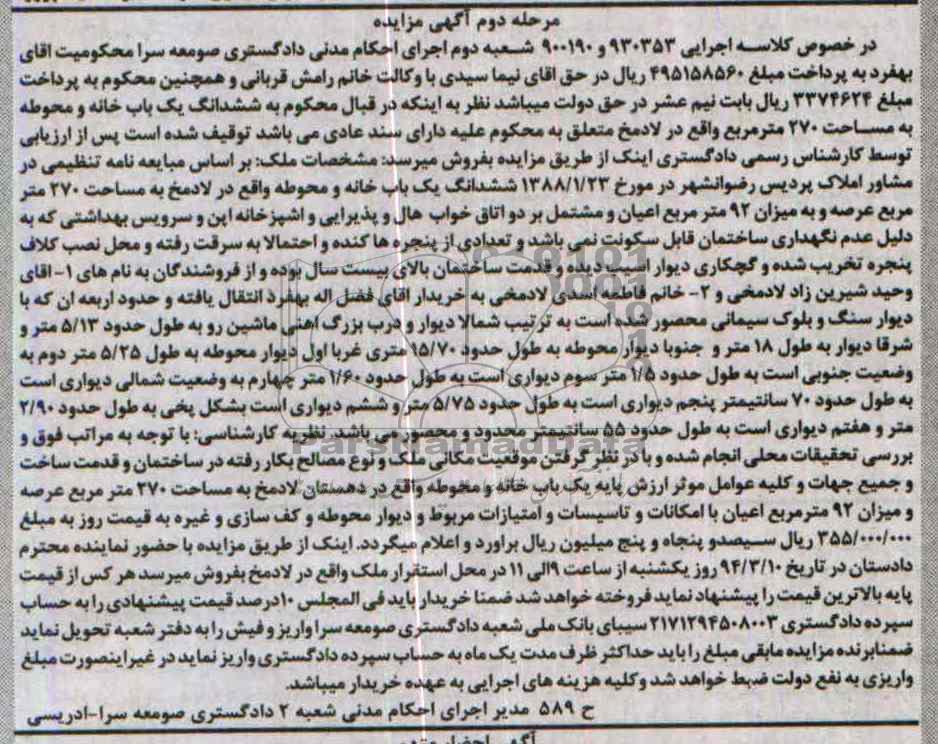 مرحله دوم آگهی مزایده
در خصوص کلاسه اجرایی ۹۳۰۳۵۳ و ۹۰۰۱۹۰ شعبه دوم اجرای احکام مدنی دادگستری صومعه سرا محکومیت اقای
بهفرد به پرداخت مبلغ ۴۹۵۱۵۸۵۶۰ ریال در حق اقای نیما سیدی با وکالت خانم رامش قربانی و همچنین محکوم به پرداخت
مبلغ ۳۳۷۴۶۲۴ ریال بابت نیم عشر در حق دولت میباشد نظر به اینکه در قبال محکوم به ششدانگ یک باب خانه و محوطه
به مساحت ۲۷۰ مترمربع واقع در لادمخ متعلق به محکوم علیه دارای سند عادی می باشد توقیف شده است پس از ارزیابی
توسط کارشناس رسمی دادگستری اینک از طریق مزایده بفروش میرسد: مشخصات ملک: بر اساس مبایعه نامه تنظیمی در
مشاور املاک پردیس رضوانشهر در مورخ ۱۳۸۸/۱/۲۳ ششدانگ یک باب خانه و محوطه واقع در لادمخ به مساحت ۲۷۰ متر
مربع عرصه و به میزان ۹۲ متر مربع اعیان و مشتمل بر دو اتاق خواب هال و پذیرایی و اشپزخانه اپن و سرویس بهداشتی که به
دلیل عدم نگهداری ساختمان قابل سکونت نمی باشد و تعدادی از پنجره ها کنده و احتمالا به سرقت رفته و محل نصب کلاف
پنجره تخریب شده و گچکاری دیوار اسیب دیده و قدمت ساختمان بالای بیست سال بوده و از فروشندگان به نام های ۱- اقای
وحید شیرین زاد لادمخی و ۲- خانم فاطمه اسدی لادمخی به خریدار اقای فضل اله بهفرد انتقال یافته و حدود اربعه ان که با
دیوار سنگ و بلوک سیمانی محصور شده است به ترتیب شمالا دیوار و درب بزرگ اهنی ماشین رو به طول حدود ۵/۱۳ متر و
شرقا دیوار به طول ۱۸ متر و جنوبا دیوار محوطه به طول حدود ۱۵/۷۰ متری غربا اول دیوار محوطه به طول ۵/۲۵ متر دوم به
وضعیت جنوبی است به طول حدود ۱/۵ متر سوم دیواری است به طول حدود ۱/۶۰ متر چهارم به وضعیت شمالی دیواری است
به طول حدود ۷۰ سانتیمتر پنجم دیواری است به طول حدود ۵/۷۵ متر و ششم دیواری است بشکل پخی به طول حدود ۲/۹۰
متر و هفتم دیواری است به طول حدود ۵۵ سانتیمتر محدود و محصور می باشد. نظریه کارشناسی: با توجه به مراتب فوق و
بررسی تحقیقات محلی انجام شده و با در نظر گرفتن موقعیت مکانی ملک و نوع مصالح بکار رفته در ساختمان و قدمت ساخت
و جمیع جهات و کلیه عوامل موثر ارزش پایه یک باب خانه و محوطه واقع در دهستان لادمخ به مساحت ۲۷۰ متر مربع عرصه
و میزان ۹۲ مترمربع اعیان با امکانات و تاسیسات و امتیازات مربوط و دیوار محوطه و کف سازی و غیره به قیمت روز به مبلغ
۳۵۵/۰۰۰/۰۰۰ ریال سیصدو پنجاه و پنج میلیون ریال براورد و اعلام میگردد. اینک از طریق مزایده با حضور نماینده محترم
دادستان در تاریخ ۹۴/۳/۱۰ روز یکشنبه از ساعت ۹الی ۱۱ در محل استقرار ملک واقع در لادمخ بفروش میرسد هر کس از قیمت
پایه بالاترین قیمت را پیشنهاد نماید فروخته خواهد شد ضمنا خریدار باید فی المجلس ۱۰درصد قیمت پیشنهادی را به حساب
سپرده دادگستری ۲۱۷۱۲۹۴۵۰۸۰۰۳ سیبای بانک ملی شعبه دادگستری صومعه سرا واریز و فیش را به دفتر شعبه تحویل نماید
ضمنابرنده مزایده مابقی مبلغ را باید حداکثر ظرف مدت یک ماه به حساب سپرده دادگستری واریز نماید در غیراینصورت مبلغ
واریزی به نفع دولت ضبط خواهد شد و کلیه هزینه های اجرایی به عهده خریدار میباشد.
ح ۵۸۹ مدیر اجرای احکام مدنی شعبه ۲ دادگستری صومعه سرا-ادریسی
ParsNamadData